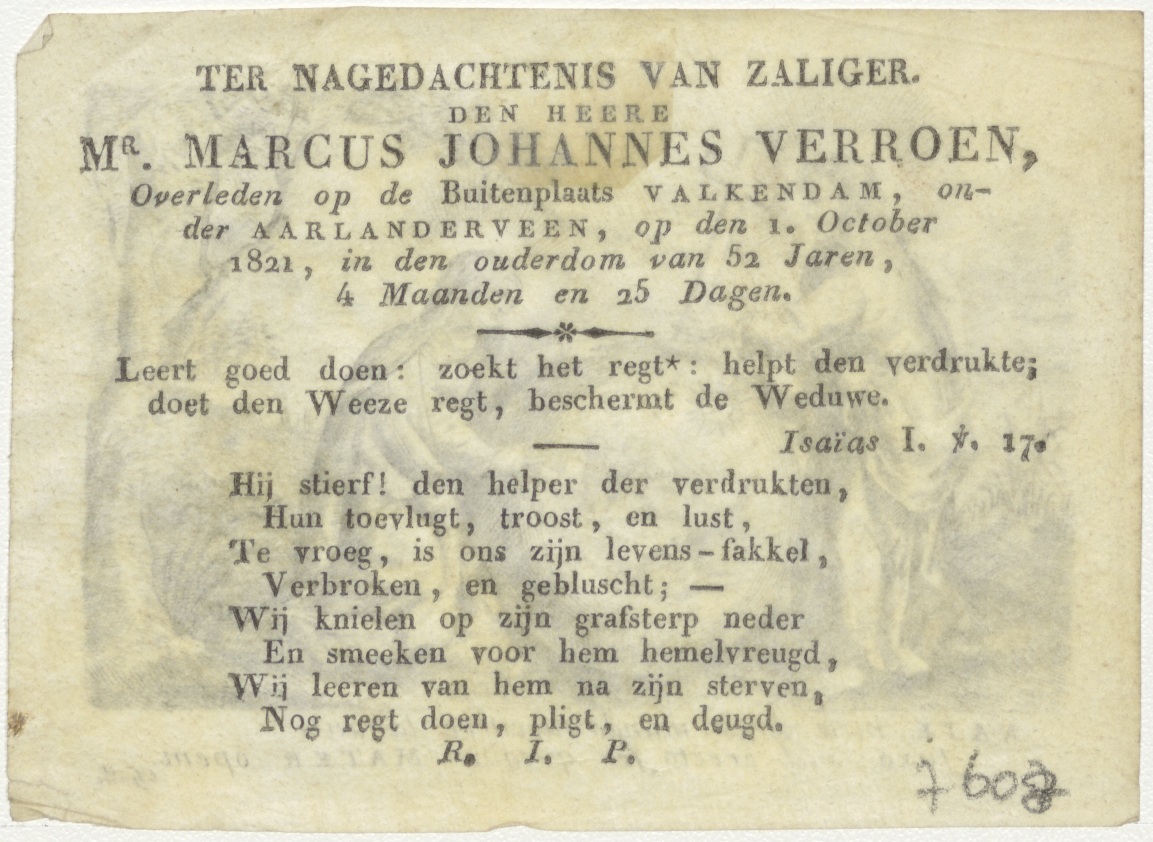 TER NAGEDACHTENIS VAN ZALIGER.
DEN HEERE
MR. MARCUS JOHANNES VERROEN,
Overleden op de Buitenplaats VALKENDAM, on-
der AARLANDERVEEN, op den 1. October
1821, in den ouderdom van 52 Jaren,
4 Maanden en 25 Dagen.
Leert goed doen: zoekt het regt*: helpt den verdrukte;
doet den Weeze regt, beschermt de Weduwe.
Isaïas I. ℣. 17.
Hij stierf! den helper der verdrukten,
Hun toevlugt, troost, en lust,
Te vroeg, is ons zijn levens-fakkel,
Verbroken, en gebluscht; —
Wij knielen op zijn grafsterp neder
En smeeken voor hem hemelvreugd,
Wij leeren van hem na zijn sterven,
Nog regt doen, pligt, en deugd.
R. I. P.